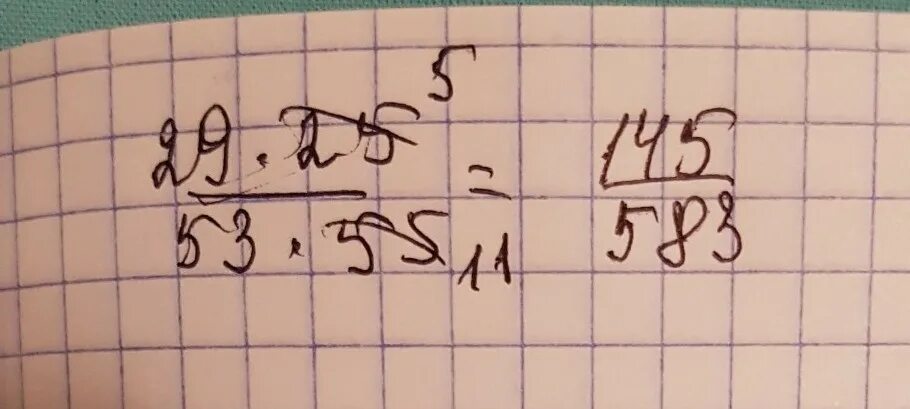 5
29 · 25
53 · 55 11
=
145
583